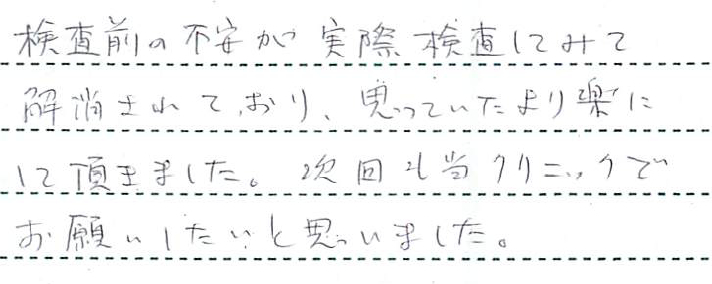 検査前の不安が実際検査してみて
解消されており、思っていたより楽に
して頂きました。次回も当クリニックで
お願いしたいと思いました。